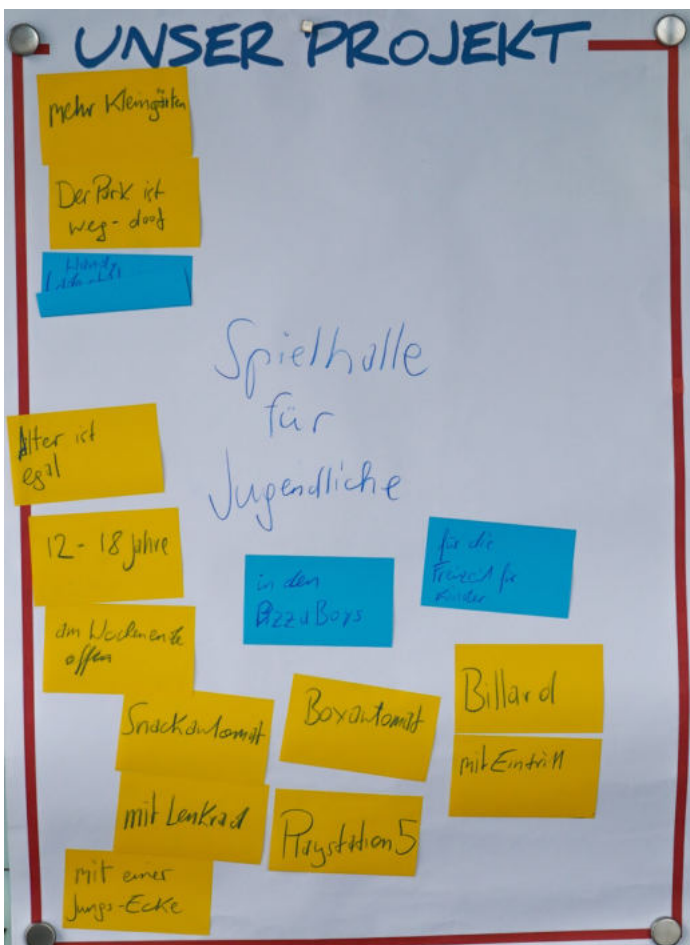 UNSER PROJEKT
mehr Kleingärten
Der Park ist
weg - doof
Spielhalle
für
Jugendliche
Alter ist
egal
12 - 18 Jahre
am Wochenende
offen
in den
PizzaBoys
für die
Freizeit für
Kinder
Snackautomat
Boxautomat
Billard
mit Eintritt
mit Lenkrad
Playstation 5
mit einer
Jungs-Ecke